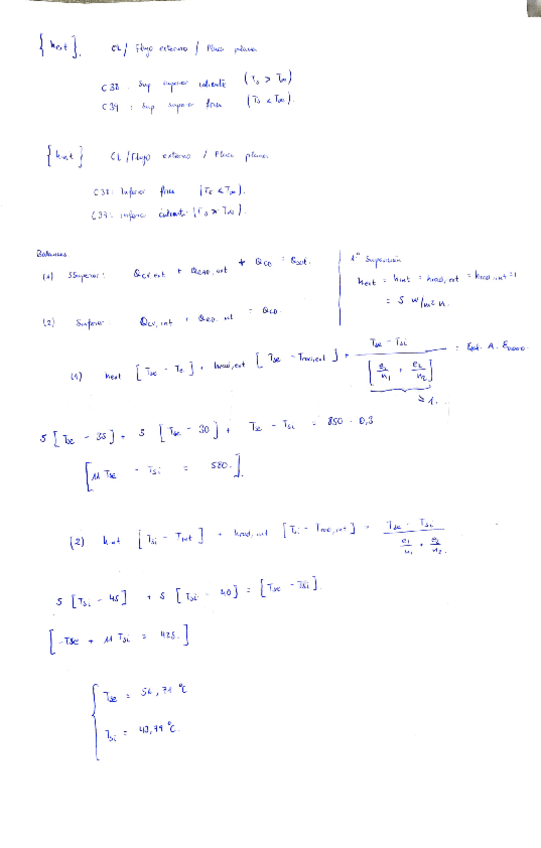 {hext}. CL / Flujo externo / Placa plana
C38: Sup superior caliente (Ts > T∞)
C39: Sup superior fría (Ts < T∞).
{hint} CL / Flujo externo / Placa plana.
C38: Inferior fría (Ts < T∞).
C39: inferior caliente (Ts > T∞).
Balances
(1) Superior: Qcv,ext + Qrad,ext + Qcd = Qsol.
1ª Suposición
hext = hint = hrad,ext = hrad,int =
= 5 W/m²K.
(2) Inferior Qcv,int + Qrad,int = Qcd.
(1) hext [Tse - Te] + hrad,ext [Tse - Trad,ext] + (Tse - Tsi) / [e1/k1 + e2/k2] =
≥ 1.
5 [Tse - 35] + 5 [Tse - 30] + Tse - Tsi = 850 · 0,3
[11 Tse - Tsi = 580.]
(2) hint [Tsi - Tint] + hrad,int [Tsi - Trad,int] = (Tse - Tsi) / (e1/k1 + e2/k2).
5 [Tsi - 45] + 5 [Tsi - 40] = [Tse - Tsi].
[-Tse + 11 Tsi = 425.]
Tse = 56,71 °C
Tsi = 43,79 °C.